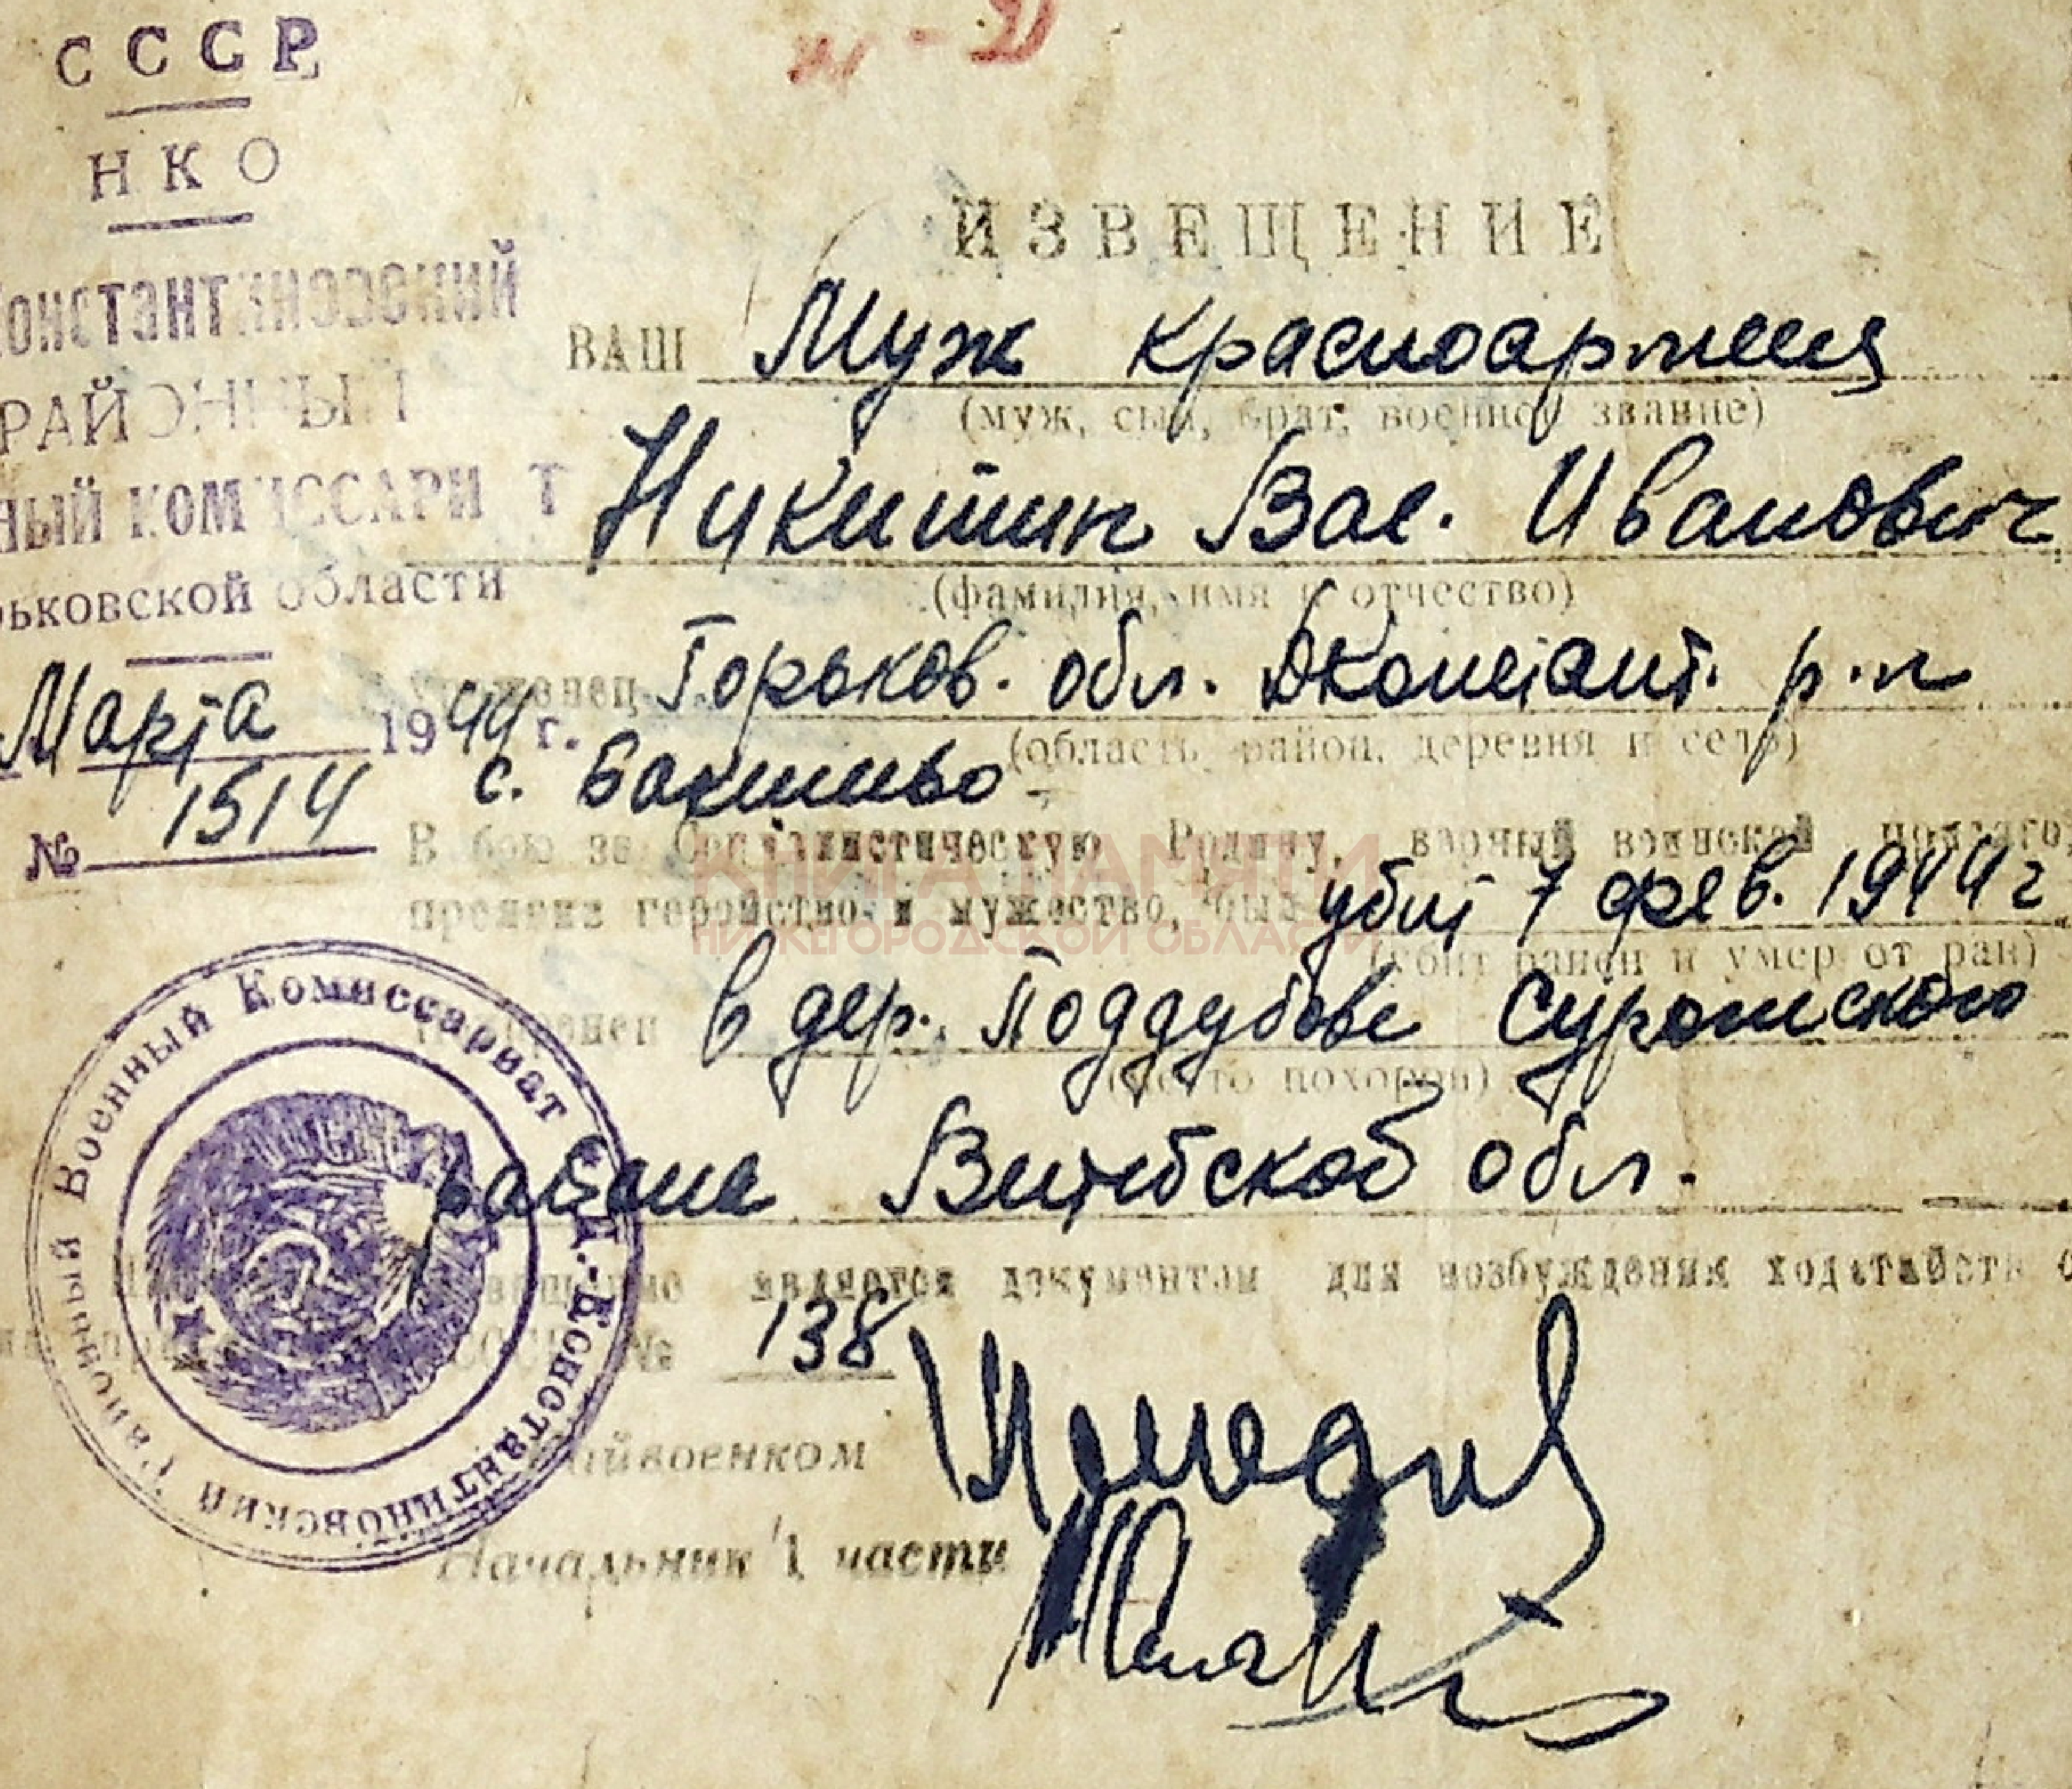 СССР
НКО
Константиновский
РАЙОННЫЙ
ный комиссариат
рьковской области
Марта 1944 г.
№ 1514
ИЗВЕЩЕНИЕ
ВАШ Муж красноармеец
(муж, сын, брат, военное звание)
Никитин Вас. Иванович
(фамилия, имя и отчество)
уроженец Горьков. обл. Дконстант. р-н
(область, район, деревня и село)
с.
В бою за Социалистическую Родину, верный воинской присяге,
проявив геройство и мужество, был убит 7 фев. 1944 г
(убит, ранен и умер от ран)
похоронен в дер. Поддубове Суражского
(место похорон)
района Витебской обл.
является документом для возбуждения ходатайств о
№ 138
Райвоенком
Начальник 1 части
Д.-Константиновский Районный Военный Комиссариат
КНИГА ПАМЯТИ
НИЖЕГОРОДСКОЙ ОБЛАСТИ